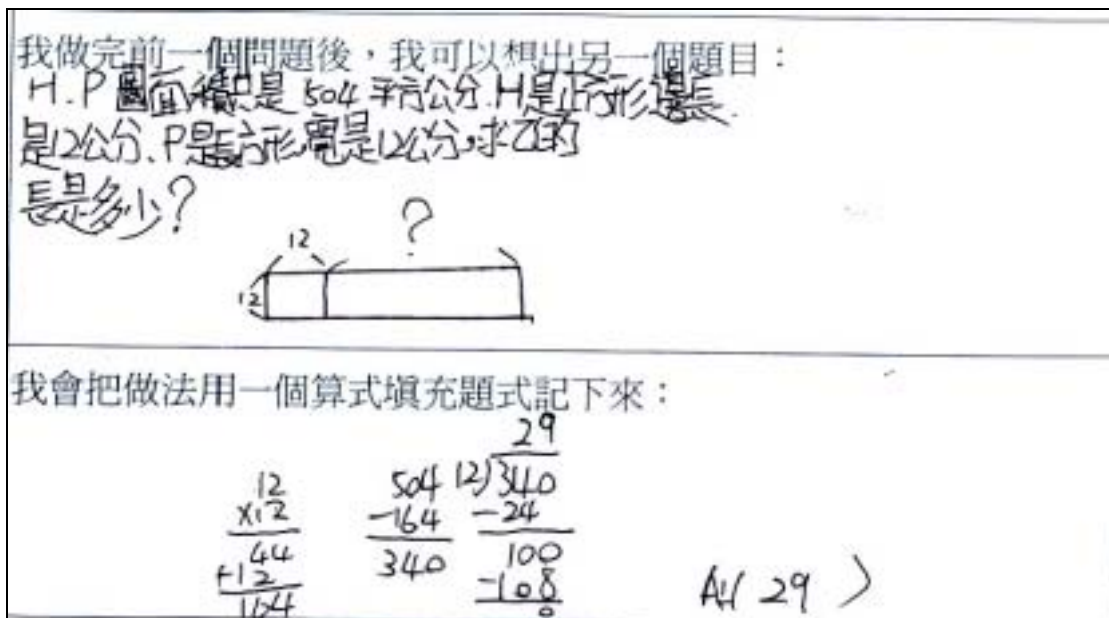 我做完前一個問題後，我可以想出另一個題目：
H.P圖面積只是 504 平方公分.H是正方形邊長
是12公分、P是長方形寬是12公分,求乙的
長是多少？
12 ?
12
我會把做法用一個算式填充題式記下來：
29
12 504 12)340
×12 -164 -24
44 340 100
+12 -108
164 0
A:( 29 )